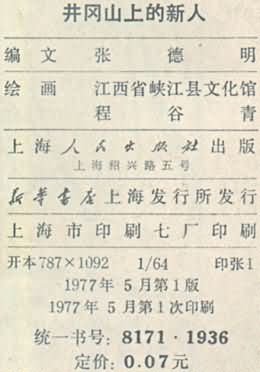 井冈山上的新人
编文 张德明
绘画 江西省峡江县文化馆
程谷青
上海人民出版社出版
上海绍兴路五号
新华书店上海发行所发行
上海市印刷七厂印刷
开本787×1092 1/64 印张1
1977年5月第1版
1977年5月第1次印刷
统一书号：8171·1936
定价：0.07元